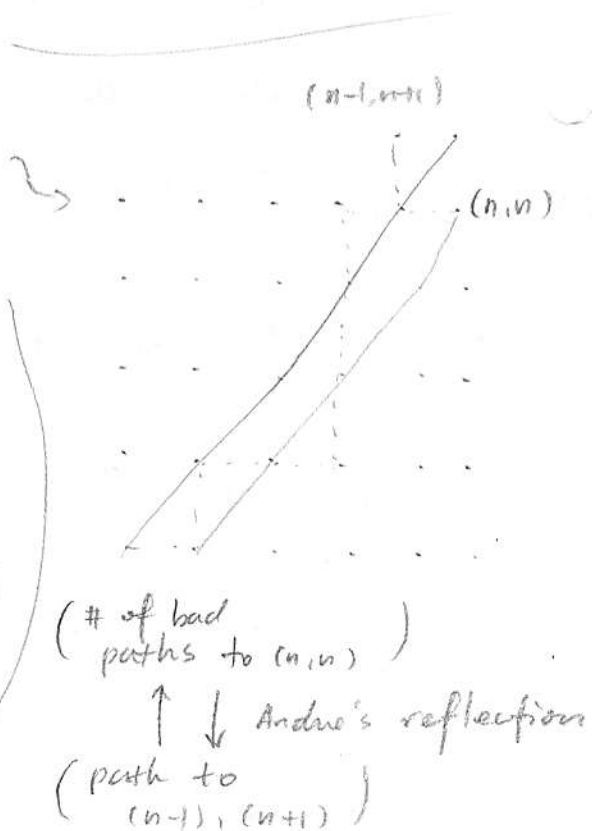 (n-1, n+1)
(n,n)
( # of bad
paths to (n,n) )
↑ ↓ Andre's reflection
( path to
(n-1), (n+1) )